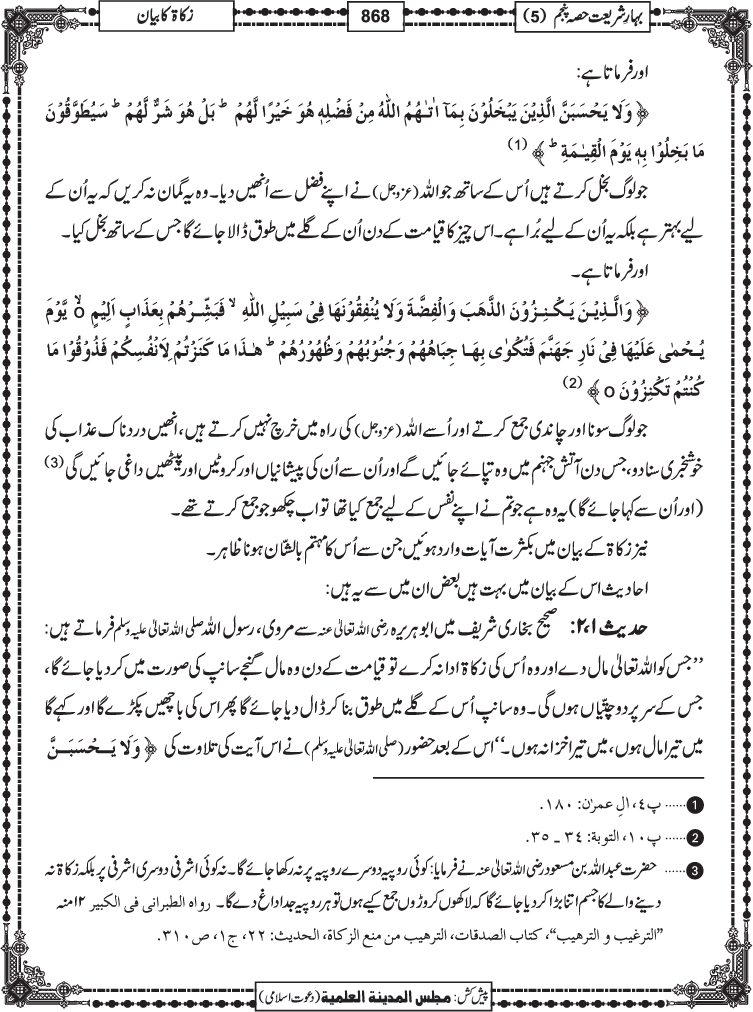 بہارِ شریعت حصہ پنجم (5)
868
زکاۃ کا بیان
اور فرماتا ہے:
﴿ وَلَا يَحْسَبَنَّ الَّذِيْنَ يَبْخَلُوْنَ بِمَاۤ اٰتٰىهُمُ اللّٰهُ مِنْ فَضْلِهٖ هُوَ خَيْرًا لَّهُمْ ؕ بَلْ هُوَ شَرٌّ لَّهُمْ ؕ سَيُطَوَّقُوْنَ
مَا بَخِلُوْا بِهٖ يَوْمَ الْقِيٰمَةِ ؕ ﴾ (1)
جو لوگ بخل کرتے ہیں اُس کے ساتھ جو اللہ (عزوجل) نے اپنے فضل سے اُنھیں دیا۔ وہ یہ گمان نہ کریں کہ یہ اُن کے
لیے بہتر ہے بلکہ یہ اُن کے لیے بُرا ہے۔ اس چیز کا قیامت کے دن اُن کے گلے میں طوق ڈالا جائے گا جس کے ساتھ بخل کیا۔
اور فرماتا ہے۔
﴿ وَالَّذِيْنَ يَكْنِزُوْنَ الذَّهَبَ وَالْفِضَّةَ وَلَا يُنْفِقُوْنَهَا فِيْ سَبِيْلِ اللّٰهِ ۙ فَبَشِّرْهُمْ بِعَذَابٍ اَلِيْمٍ ۙo يَّوْمَ
يُحْمٰى عَلَيْهَا فِيْ نَارِ جَهَنَّمَ فَتُكْوٰى بِهَا جِبَاهُهُمْ وَجُنُوْبُهُمْ وَظُهُوْرُهُمْ ؕ هٰذَا مَا كَنَزْتُمْ لِاَنْفُسِكُمْ فَذُوْقُوْا مَا
كُنْتُمْ تَكْنِزُوْنَ o ﴾ (2)
جو لوگ سونا اور چاندی جمع کرتے اور اُسے اللہ (عزوجل) کی راہ میں خرچ نہیں کرتے ہیں، انھیں دردناک عذاب کی
خوشخبری سنا دو، جس دن آتشِ جہنم میں وہ تپائے جائیں گے اور اُن سے اُن کی پیشانیاں اور کروٹیں اور پیٹھیں داغی جائیں گی (3)
(اور اُن سے کہا جائے گا) یہ وہ ہے جو تم نے اپنے نفس کے لیے جمع کیا تھا تو اب چکھو جو جمع کرتے تھے۔
نیز زکاۃ کے بیان میں بکثرت آیات وارد ہوئیں جن سے اُس کا مہتم بالشّان ہونا ظاہر۔
احادیث اس کے بیان میں بہت ہیں بعض ان میں سے یہ ہیں:
حدیث ۲،۱: صحیح بخاری شریف میں ابوہریرہ رضی اللہ تعالیٰ عنہ سے مروی، رسول اللہ صلی اللہ تعالیٰ علیہ وسلم فرماتے ہیں:
’’جس کو اللہ تعالیٰ مال دے اور وہ اُس کی زکاۃ ادا نہ کرے تو قیامت کے دن وہ مال گنجے سانپ کی صورت میں کر دیا جائے گا،
جس کے سر پر دو چتیاں ہوں گی۔ وہ سانپ اُس کے گلے میں طوق بنا کر ڈال دیا جائے گا پھر اس کی باچھیں پکڑے گا اور کہے گا
میں تیرا مال ہوں، میں تیرا خزانہ ہوں۔‘‘ اس کے بعد حضور (صلی اللہ تعالیٰ علیہ وسلم) نے اس آیت کی تلاوت کی ﴿ وَلَا يَحْسَبَنَّ
1 ...... پ٤، اٰل عمرٰن: ١٨٠.
2 ...... پ١٠، التوبة: ٣٤ ـ ٣٥.
3 ...... حضرت عبداللہ بن مسعود رضی اللہ تعالیٰ عنہ نے فرمایا: کوئی روپیہ دوسرے روپیہ پر نہ رکھا جائے گا۔ نہ کوئی اشرفی دوسری اشرفی پر بلکہ زکاۃ نہ
دینے والے کا جسم اتنا بڑا کر دیا جائے گا کہ لاکھوں کروڑوں جمع کیے ہوں تو ہر روپیہ جدا داغ دے گا۔ رواه الطبراني في الكبير ١٢ منہ
"الترغيب و الترهيب"، كتاب الصدقات، الترهيب من منع الزكاة، الحديث: ٢٢، ج١، ص٣١٠.
پیش کش: مجلس المدینة العلمیة (دعوت اسلامی)